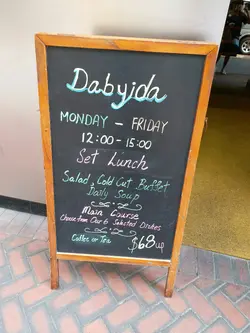 Dabyida
MONDAY - FRIDAY
12:00 - 15:00
Set Lunch
Salad, Cold Cut Buffet
Daily Soup
Main Course
Choose from Our 6 Selected Dishes
Coffee or Tea $68 up